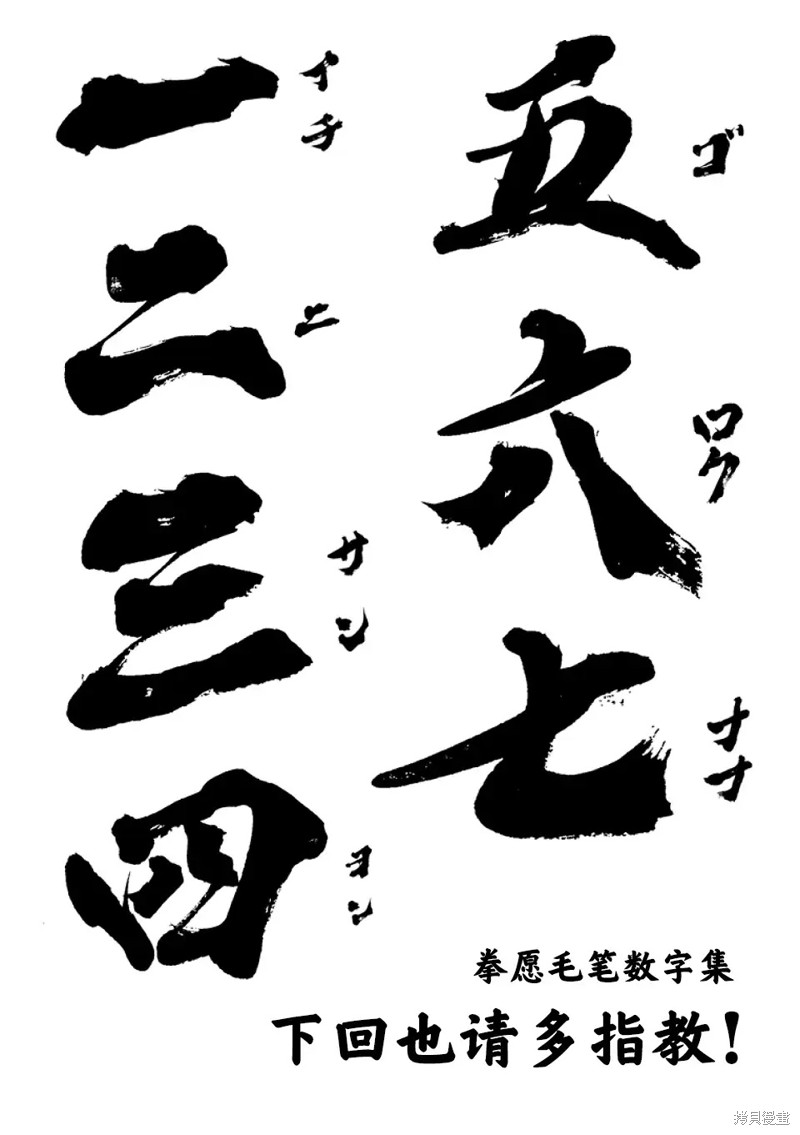 一 イチ
二 ニ
三 サン
四 ヨン
五 ゴ
六 ロク
七 ナナ
拳愿毛笔数字集
下回也请多指教!
拷貝漫畫